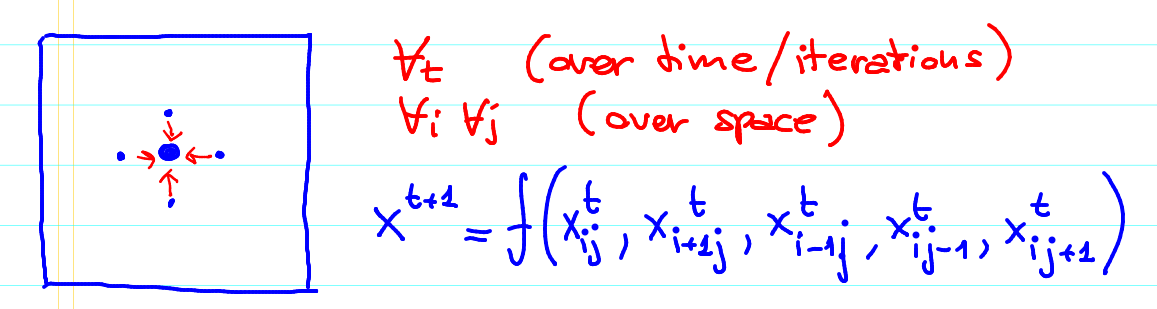 ∀t (over time/iterations)
∀i ∀j (over space)
x^{t+1} = f(x_{ij}^t, x_{i+1j}^t, x_{i-1j}^t, x_{ij-1}^t, x_{ij+1}^t)